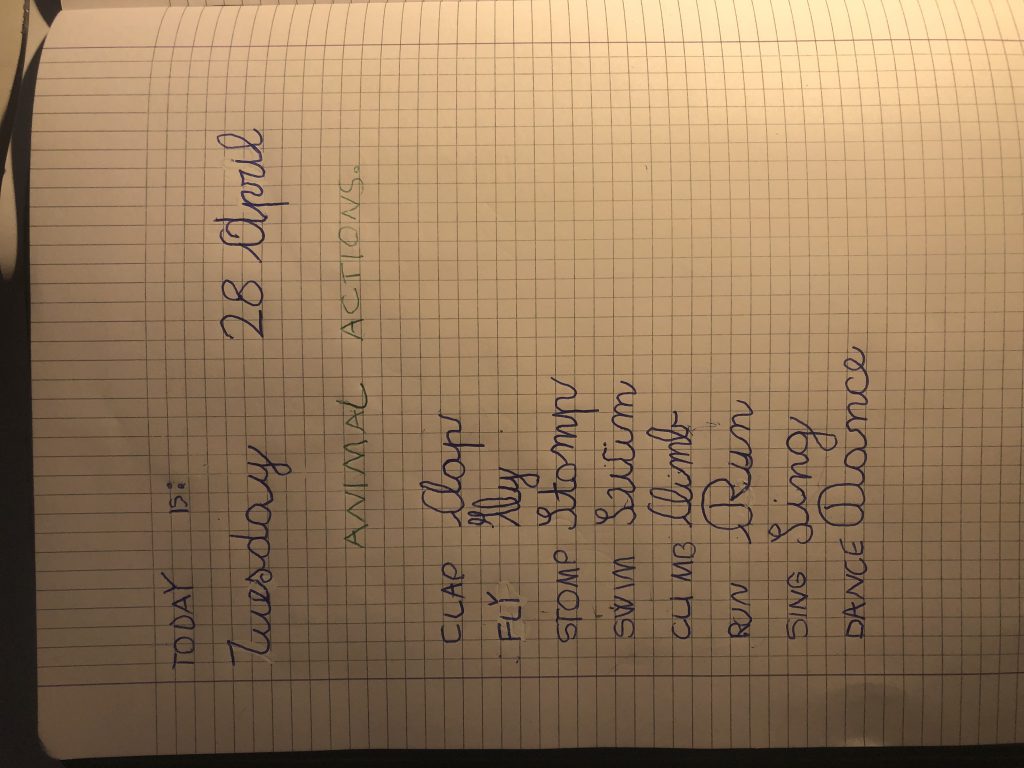 TODAY is:
Tuesday 28 April
ANIMAL ACTIONS.
CLAP Clap
FLY Fly
STOMP Stomp
SWIM Swim
CLIMB Climb
RUN Run
SING Sing
DANCE Dance